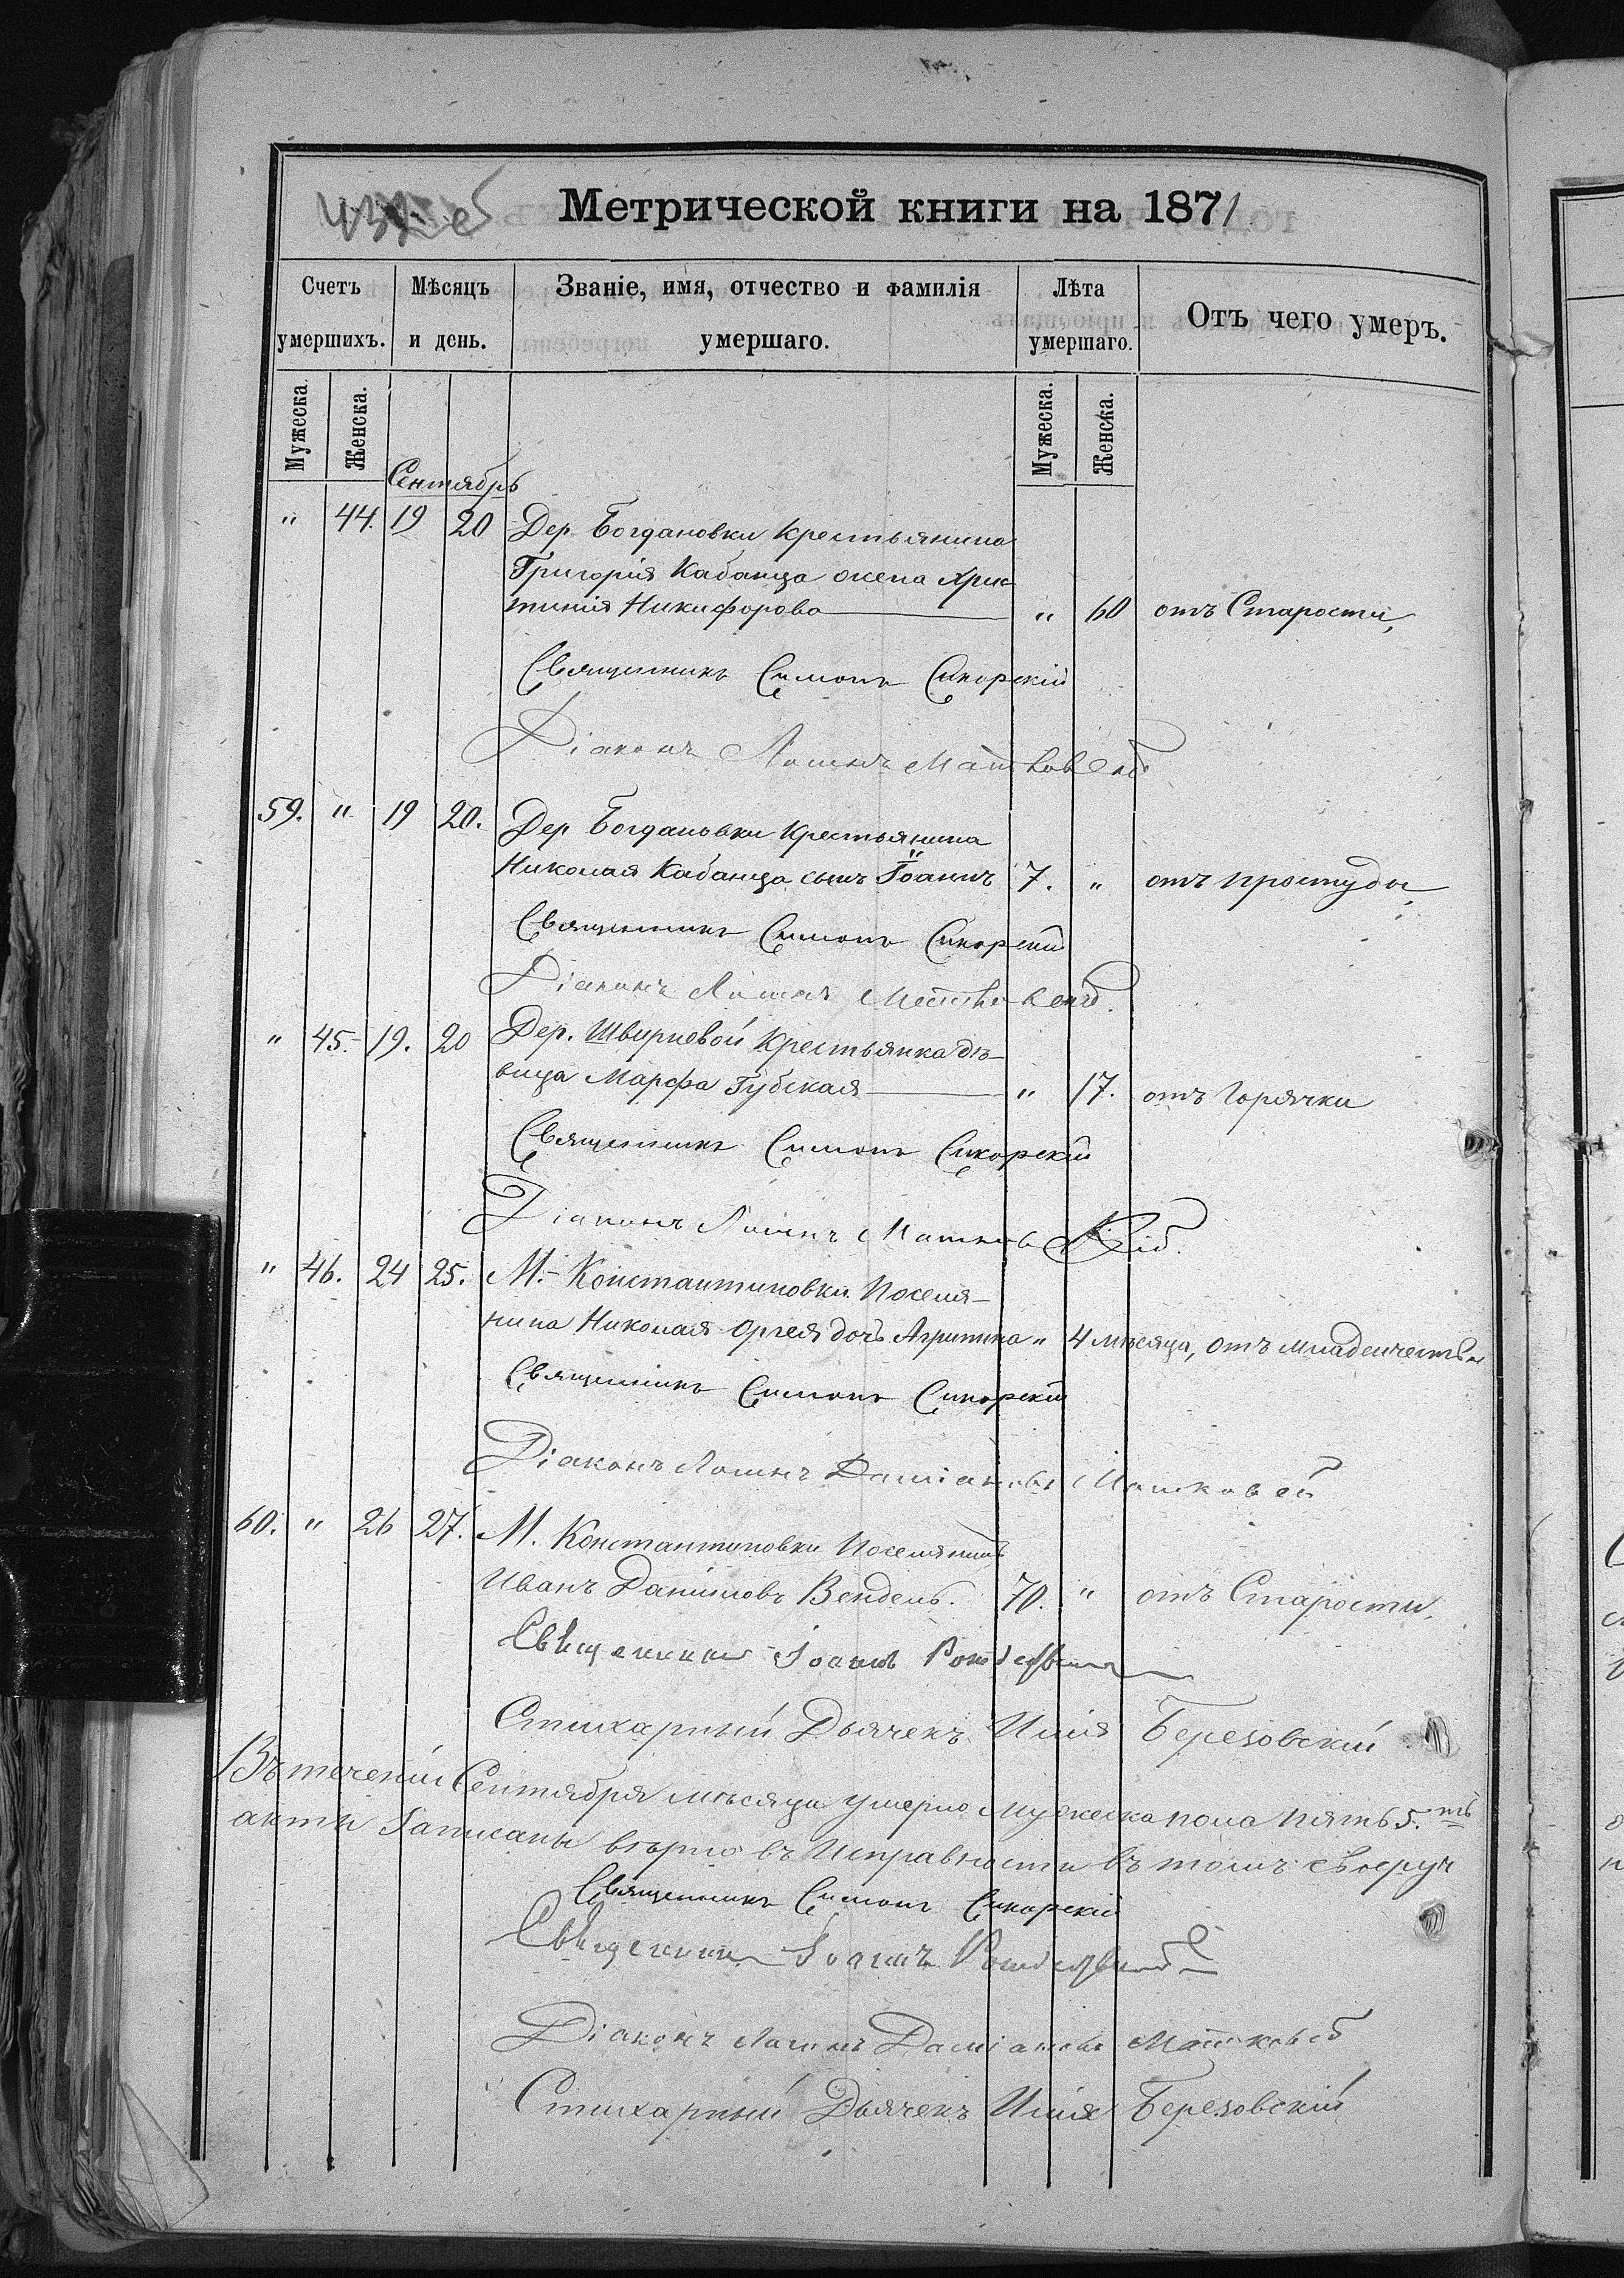 Метрической книги на 1871
Счетъ умершихъ. Мѣсяцъ и день. Званіе, имя, отчество и фамилія умершаго. Лѣта умершаго. Отъ чего умеръ.
Мужеска. Женска. Мужеска. Женска.
Сентябрь
" 44. 19 20 Дер. Богдановки Крестьянина
Григорія Кабанца жена Хрис
тинія Никифорова " 60 отъ Старости,
Священникъ Симонъ Сикорскій
Діаконъ Логинъ
59. " 19 20. Дер Богдановки Крестьянина
Николая Кабанца сынъ Іоаннъ 7. " отъ простуды
Священникъ Симонъ Сикорскій
Діаконъ Логинъ
" 45. 19. 20 Дер. Швырневой Крестьянка дѣ-
вица Марфа Губская " 17. отъ Горячки
Священникъ Симонъ Сикорскій
Діаконъ Логинъ
" 46. 24 25. М. Константиновки Поселя-
нина Николая Оргея дочъ Агрипина " 4 мѣсяца, отъ младенчества
Священникъ Симонъ Сикорскій
Діаконъ Логинъ Даміановъ
60. " 26 27. М. Константиновки Поселянинъ
Иванъ Даниловъ Вендель. 70. " отъ Старости.
Священникъ Іоаннъ
Стихарный Дьячекъ Илія Березовскій
Въ теченіи Сентября мѣсяца умерло Мужеска пола пять 5.ть
акты Записаны вѣрно въ Исправности въ томъ своеруч
Священникъ Симонъ Сикорскій
Священникъ Іоаннъ
Діаконъ Логинъ Даміановъ
Стихарный Дьячекъ Илія Березовскій